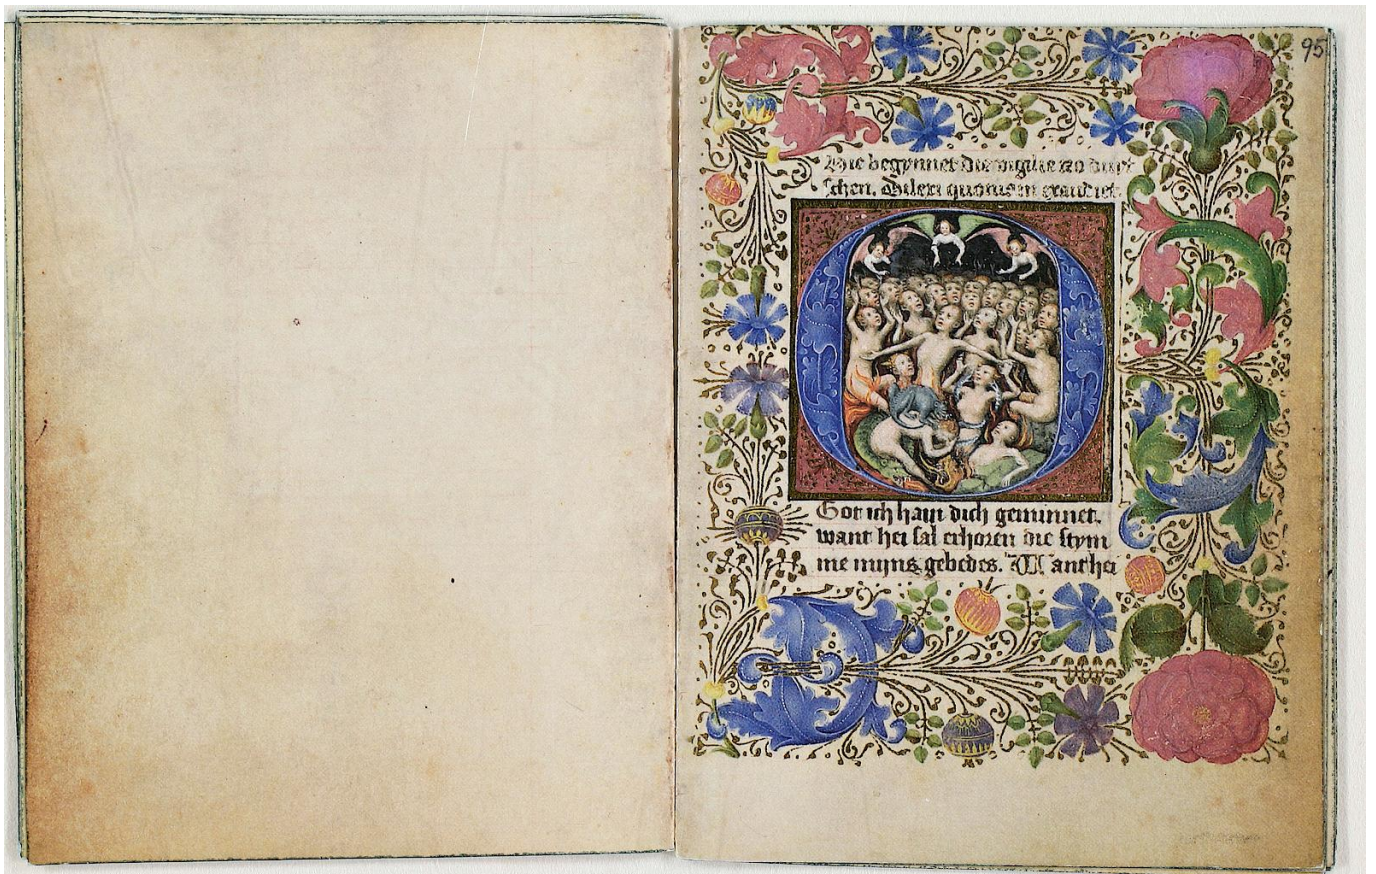 95
Hie begynnet die vigilie zo duit
schen. Dilexi quoniam exaudiet.
Got ich hain dich geminnet.
want hei sal erhoren die stym
me myns gebedes. Want hei